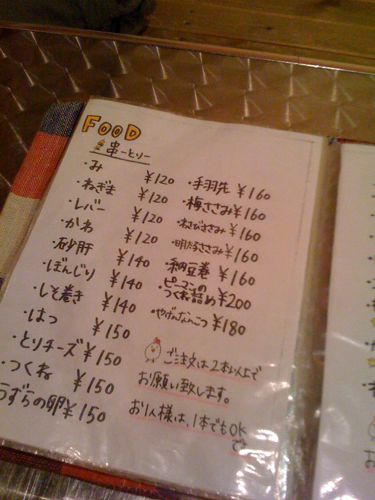 FOOD
串ーとりー
・み ¥120
・ねぎま ¥120
・レバー ¥120
・かわ ¥120
・砂肝 ¥140
・ぼんじり ¥140
・しそ巻き ¥140
・はつ ¥150
・とりチーズ ¥150
・つくね ¥150
うずらの卵 ¥150
・手羽先 ¥160
・梅ささみ ¥160
・わさびささみ ¥160
・明太ささみ ¥160
・納豆巻 ¥160
・ピーマンの
つくね詰め ¥200
・やげんなんこつ ¥180
ご注文は2本以上で
お願い致します。
お1人様は、1本でもOK
です